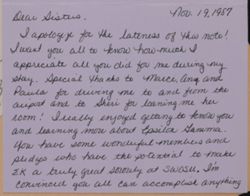 Nov. 19, 1987
Dear Sisters,
I apologize for the lateness of this note!
I want you all to know how much I
appreciate all you did for me during my
stay. Special thanks to Marcee, Amy and
Paula for driving me to and from the
airport and to Sheri for loaning me her
room! I really enjoyed getting to know you
and learning more about Epsilon Gamma.
You have some wonderful members and
pledges who have the potential to make
EK a truly great sorority at SWOSU. I'm
convinced you all can accomplish anything